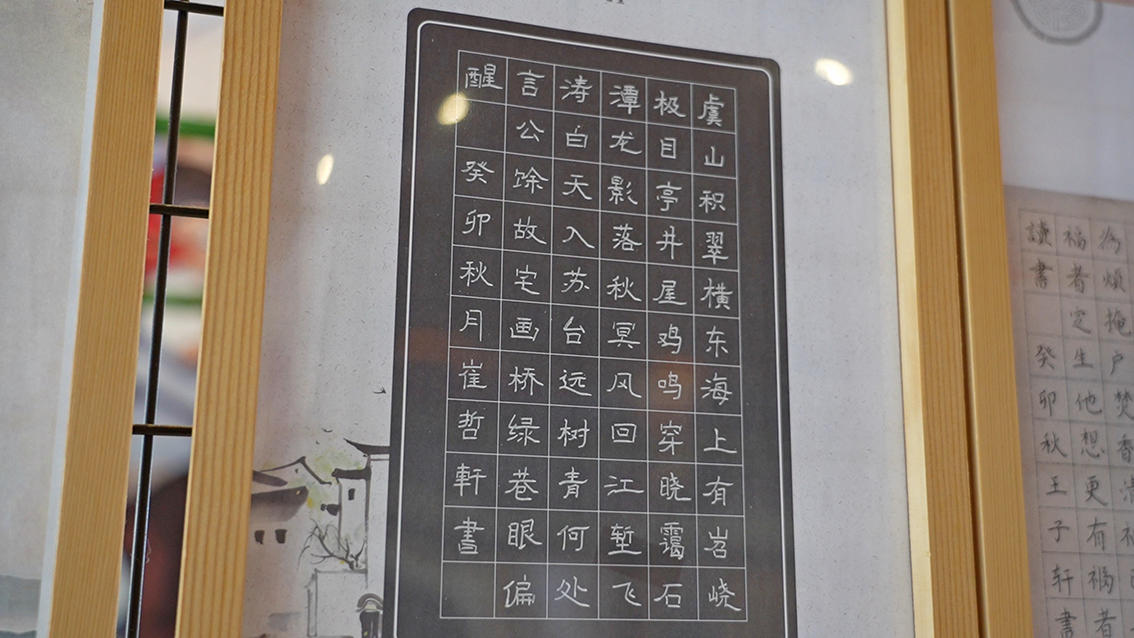 虞山积翠横东海上有岧峣
极目亭井屋鸡鸣穿晓霭石
潭龙影落秋冥风回江堑飞
涛白天入苏台远树青何处
言公馀故宅画桥绿巷眼偏
醒 癸卯秋月崔哲軒書
為煩掩户焚香清
福者定生他想更有祸者
讀書 癸卯秋王子轩書